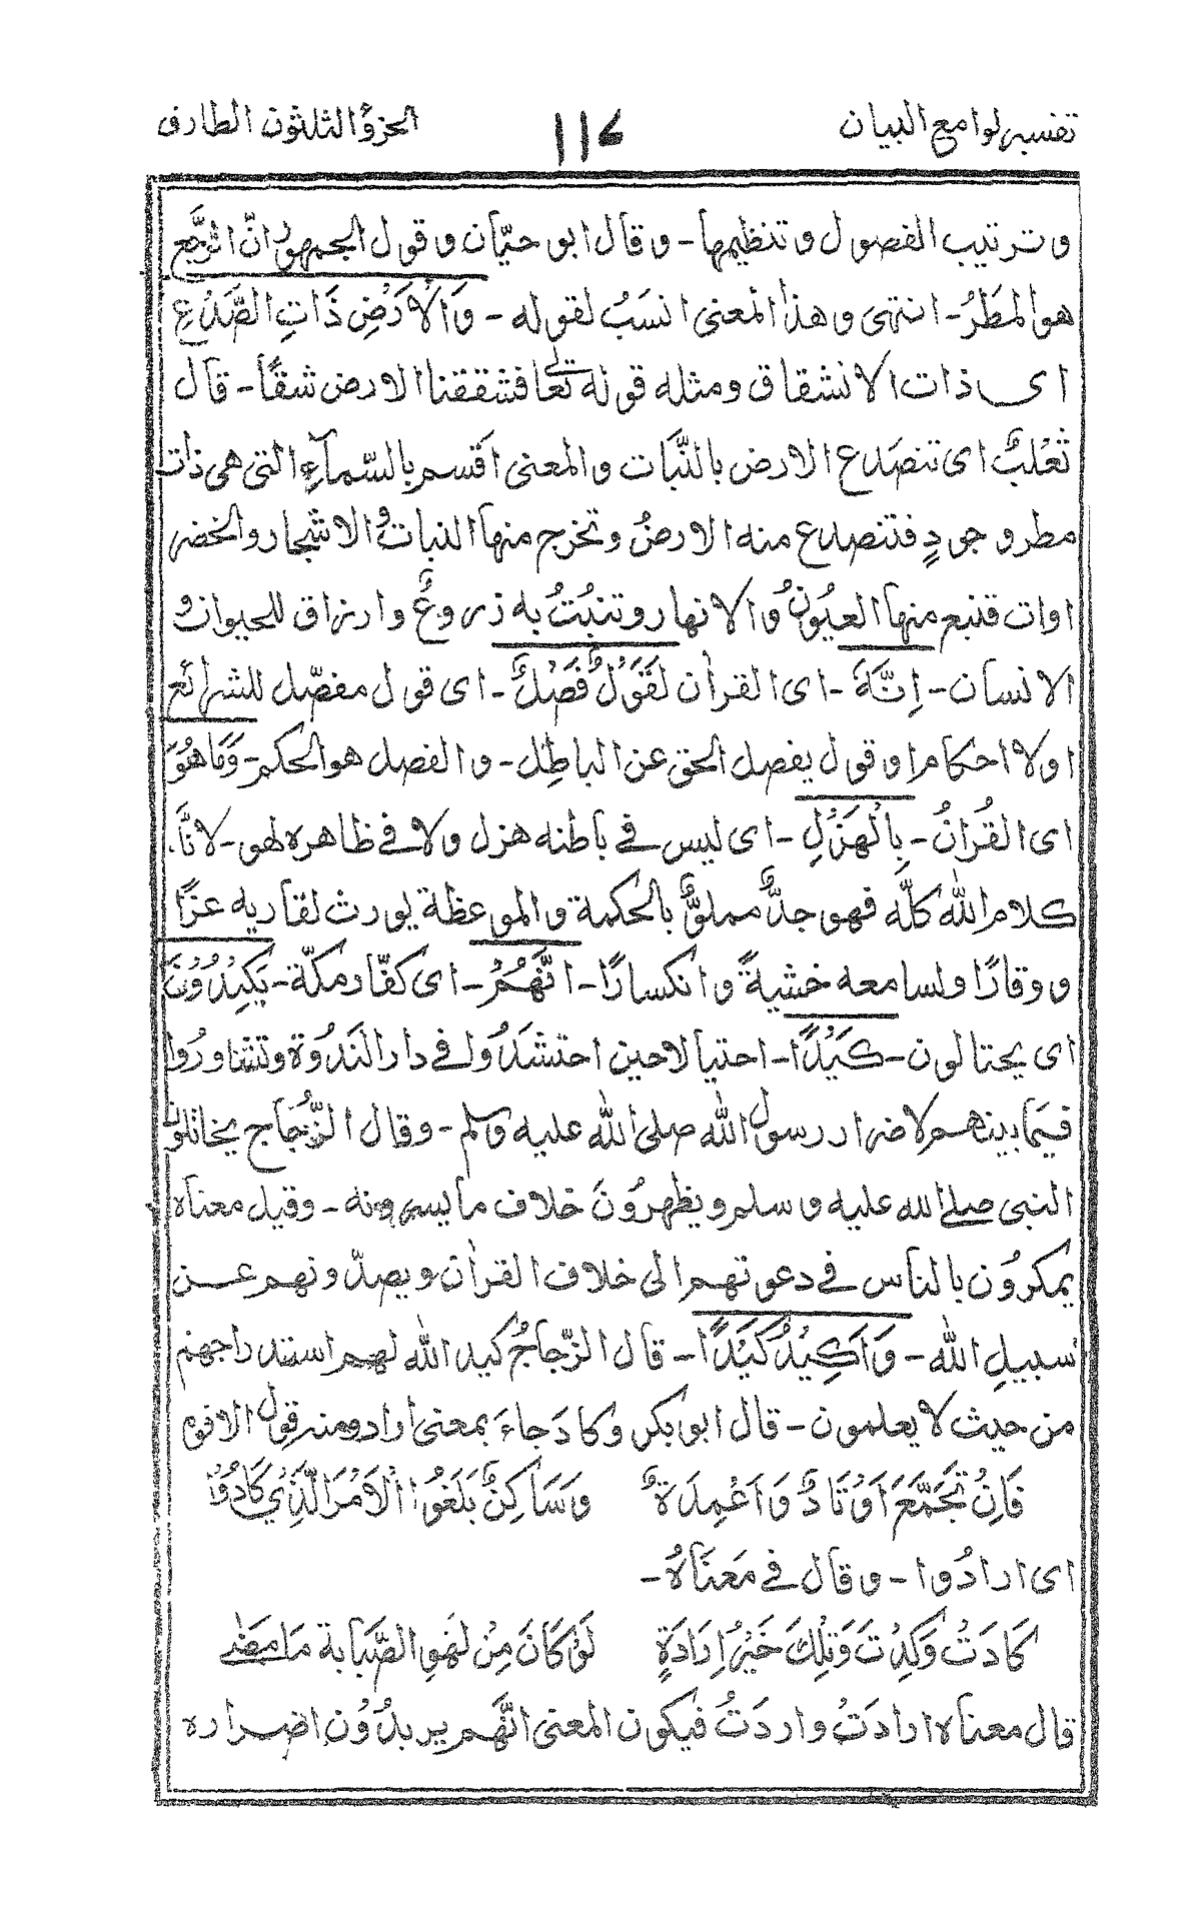 تفسير لوامع البيان ١١٤ الجزؤ الثلثون الطارق
وترتيب الفصول وتنظيمها - وقال ابو حيّان وقول الجمهور انّ الرّجع
هو المطَرُ - انتهى وهذا المعنى انسَبُ لقوله - وَالْاَرْضِ ذَاتِ الصَّدْعِ
اى ذات الانشقاق ومثله قوله تعالى فشققنا الارض شقًّا - قال
ثَعْلبٌ اى تنصَدع الارض بالنَّبات والمعنى اقسم بالسّمآءِ التى هى ذات
مطر وجودٍ فتنصدع منه الارضُ وتخرج منها النبات والاشجار والخضر
اوات فتنبع منها العيُونُ والانهار وتنبُتُ به زروعٌ وارزاق للحيوان و
الانسان - اِنَّهٗ - اى القراٰن لَقَوْلٌ فَصْلٌ - اى قول مفصّل للشرائع
اولا احكام او قول يفصل الحق عن الباطِل - والفصل هو الحكم - وَمَا هُوَ
اى القُراٰنُ - بِالْهَزْلِ - اى ليس فى باطنه هزل ولا فى ظاهره لهو - لانَّ
كلام اللّٰه كلَّه فهو جدٌّ مملوٌّ بالحكمة والموعظة يورث لقاريه عزًّا
ووقارًا ولسامعه خشيةً وانكسارًا - انَّهُمْ - اى كفّار مكّة - يَكِيْدُوْنَ
اى يحتالون - كَيْدًا - احتيالا حين احتشدُوا فى دار النَدْوَة وتشاورُوا
فيمَا بينهم لاضرار رسول اللّٰه صلى اللّٰه عليه وسلم - وقال الزُّجَاج يخاتلون
النبى صلى الله عليه وسلم ويظهرُونَ خلاف ما يسرونه - وقيل معناه
يمكرُون بالناس فى دعوتهم الى خلاف القراٰن ويصدّونهم عن
سبيلِ اللّٰه - وَاَكِيْدُ كَيْدًا - قال الزّجاجُ كيد اللّٰه لهم استدراجهم
من حيث لا يعلمون - قال ابو بكر وكادَ جاءَ بمعنى اراد ومنه قول الافوه
فَاِنْ تَجَمَّعَ اَوْتَادٌ وَاَعْمِدَةٌ وَسَاكِنٌ بَلَغُوا الْاَمْرَ الَّذِيْ كَادُوْا
اى ارادُوا - وقال فى مَعنَاهُ -
كَادَتْ وَكِدْتَ وَتِلْكَ خَيْرُ اِرَادَةٍ لَوْ كَانَ مِنْ لَهْوِ الصَّبَابة مَا مَضٰى
قال معناه ارادَتْ واردَتْ فيكون المعنى انَّهم يريدُوْن اضراره